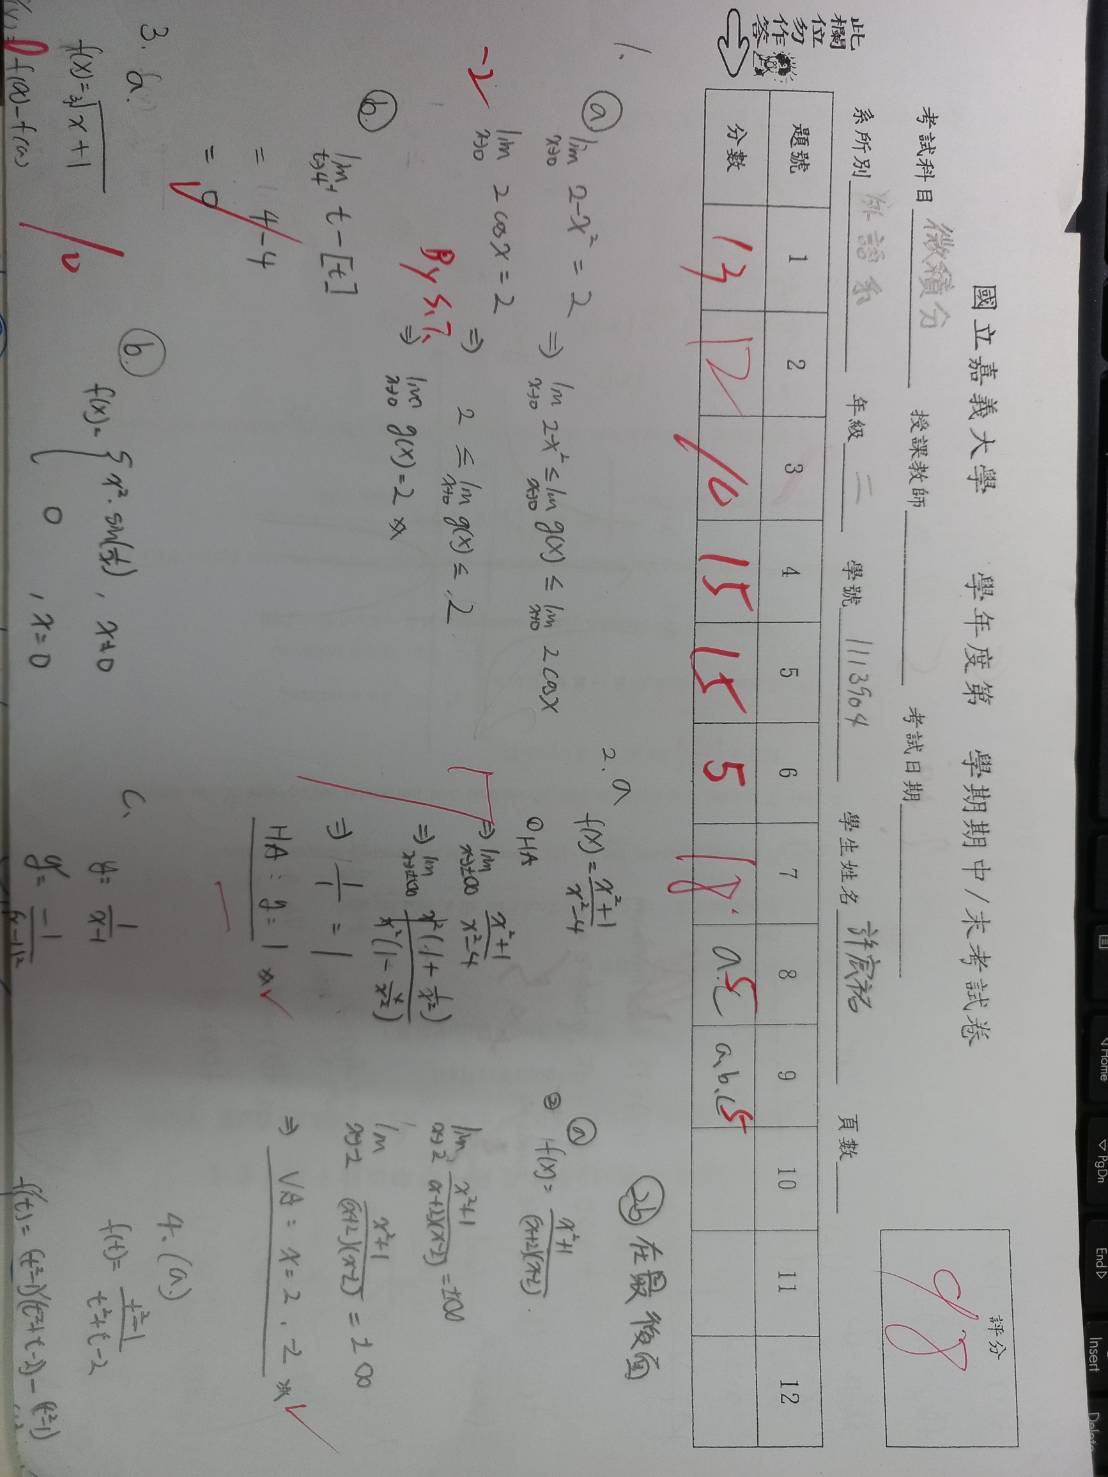 Home
PgDn
End
Insert
Delete
國立嘉義大學 學年度第 學期期中/末考試卷
評分
98
考試科目 微積分 授課教師 考試日期
系所別 外語系 年級 二 學號 1113904 學生姓名 許宸祐 頁數
此欄位勿作答
題號 1 2 3 4 5 6 7 8 9 10 11 12
分數 13 12 10 15 15 5 18 a.c 5 a.b.c 5
2b 在最後面
1.
a
lim x→0 2-x² = 2
⇒ lim x→0 2-x² ≤ lim x→0 g(x) ≤ lim x→0 2cosx
-2
lim x→0 2cosx = 2
⇒ 2 ≤ lim x→0 g(x) ≤ 2
By S.T.
⇒ lim x→0 g(x) = 2
b
lim t→4⁺ t-[t]
= 4-4
= 0
2. a
f(x) = (x²+1)/(x²-4)
① HA
⇒ lim x→±∞ (x²+1)/(x²-4)
⇒ lim x→±∞ x²(1+1/x²)/x²(1-4/x²)
⇒ 1/1 = 1
HA : y = 1
a
② f(x) = (x²+1)/((x+2)(x-2))
lim x→2 (x²+1)/((x+2)(x-2)) = ±∞
lim x→-2 (x²+1)/((x+2)(x-2)) = ±∞
⇒ VA : x = 2 , -2
3. a.
f(x) = ∛(x+1)
10
f(x)-f(a)
b
f(x) = { x²·sin(1/x) , x≠0
0 , x=0
c.
y = 1/(x-1)
y' = -1/(x-1)²
4. (a.)
f(t) = (t²-1)/(t²+t-2)
f'(t) = (t²-1)'(t²+t-2) - (t²-1)